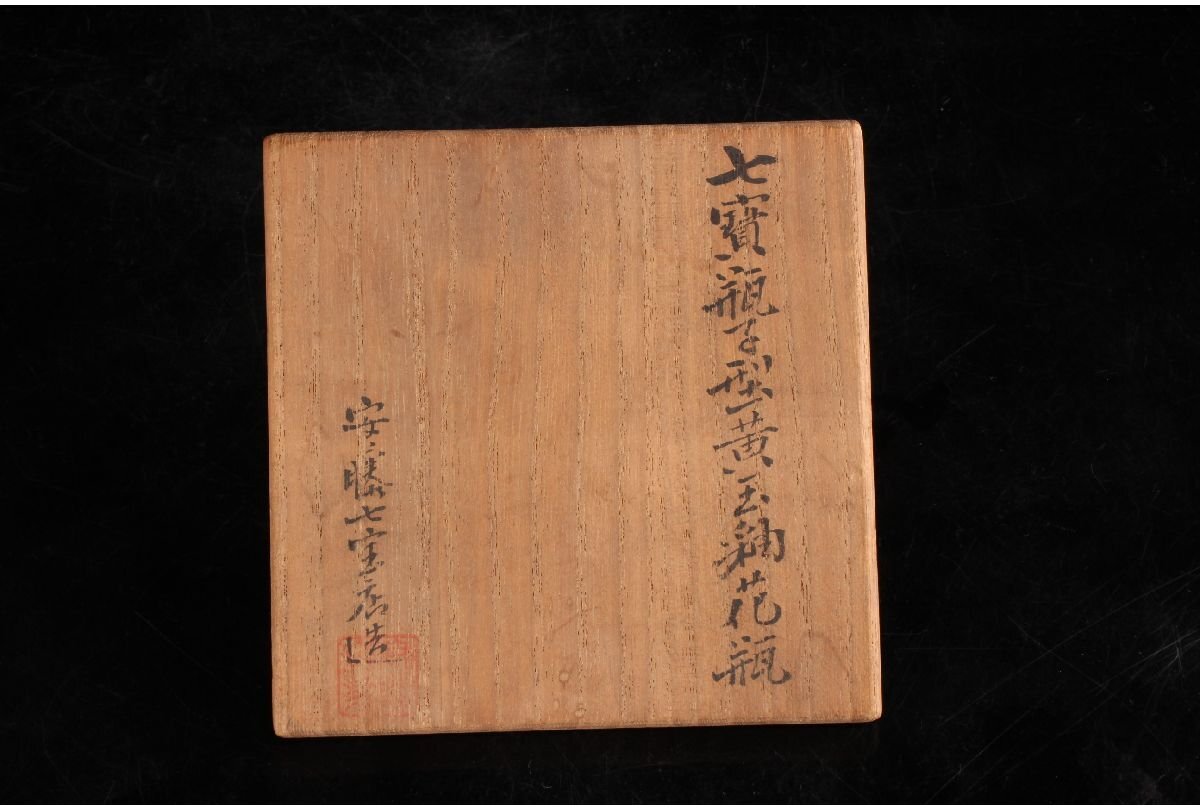 七寶瓶子型黄玉釉花瓶
安藤七宝店造